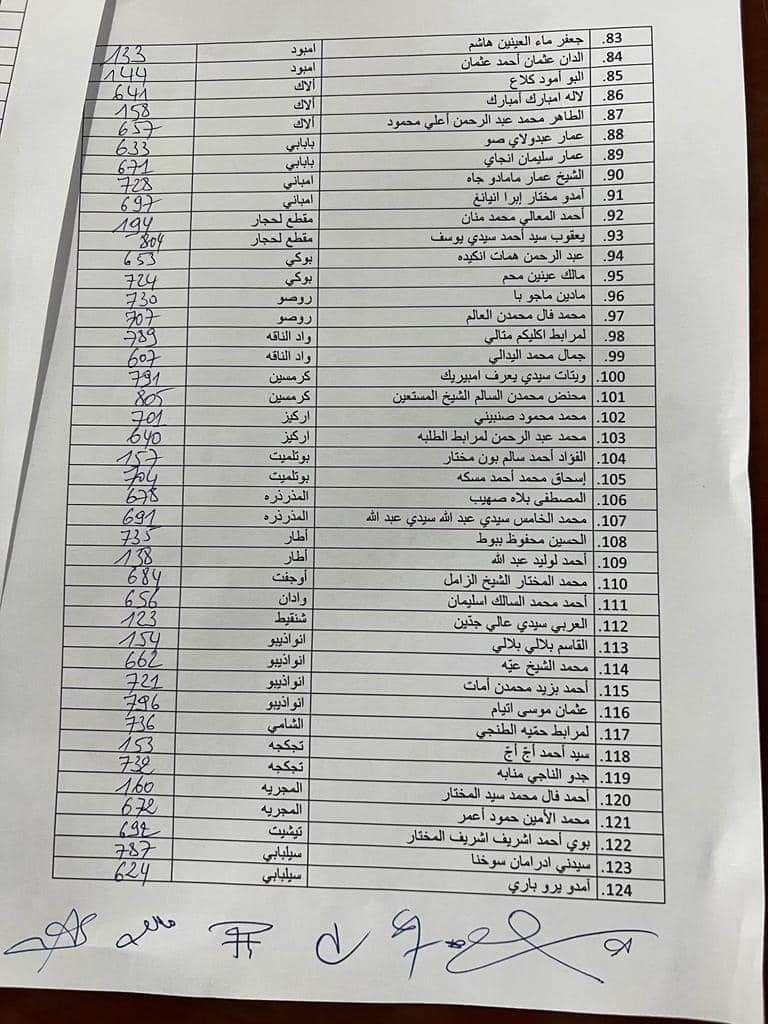 83. جعفر ماء العينين هاشم امبود 133
84. الدان عثمان أحمد عثمان امبود 144
85. البو أمود كلاع ألاك 641
86. لاله امبارك أمبارك ألاك 158
87. الطاهر محمد عبد الرحمن أعلي محمود ألاك 657
88. عمار عبدولاي صو بابابي 633
89. عمار سليمان انجاي بابابي 671
90. الشيخ عمار مامادو جاه امباني 728
91. آمدو مختار إبرا انيانغ امباني 697
92. أحمد المعالي محمد منان مقطع لحجار 194
93. يعقوب سيد أحمد سيدي يوسف مقطع لحجار 804
94. عبد الرحمن همات انكيده بوكي 653
95. مالك عينين محم بوكي 724
96. مادين ماجو با روصو 730
97. محمد فال محمدن العالم روصو 707
98. لمرابط اكليكم متالي واد الناقه 789
99. جمال محمد اليدالي واد الناقه 607
100. ويتات سيدي يعرف امبيريك كرمسين 791
101. محنض محمدن السالم الشيخ المستعين كرمسين 805
102. محمد محمود صنبيني اركيز 701
103. محمد عبد الرحمن لمرابط الطلبه اركيز 640
104. الفؤاد أحمد سالم بون مختار بوتلميت 157
105. إسحاق محمد أحمد مسكه بوتلميت 704
106. المصطفى بلاه صهيب المذرذره 678
107. محمد الخامس سيدي عبد الله سيدي عبد الله المذرذره 691
108. الحسين محفوظ ببوط أطار 735
109. أحمد لوليد عبد الله أطار 138
110. محمد المختار الشيخ الزامل أوجفت 684
111. أحمد محمد السالك اسليمان وادان 656
112. العربي سيدي عالي جدّين شنقيط 123
113. القاسم بلالي بلالي انواذيبو 154
114. محمد الشيخ عيّه انواذيبو 662
115. أحمد بزيد محمدن أمات انواذيبو 721
116. عثمان موسى اتيام انواذيبو 796
117. لمرابط حمّيه الطنجي الشامي 736
118. سيد أحمد أجّ أجّ تجكجه 153
119. جدو الناجي منابه تجكجه 732
120. أحمد فال محمد سيد المختار المجريه 160
121. محمد الأمين حمود أعمر المجريه 672
122. بوي أحمد اشريف اشريف المختار تيشيت 692
123. سيدني ادرامان سوخنا سيلبابي 787
124. آمدو يرو باري سيلبابي 624